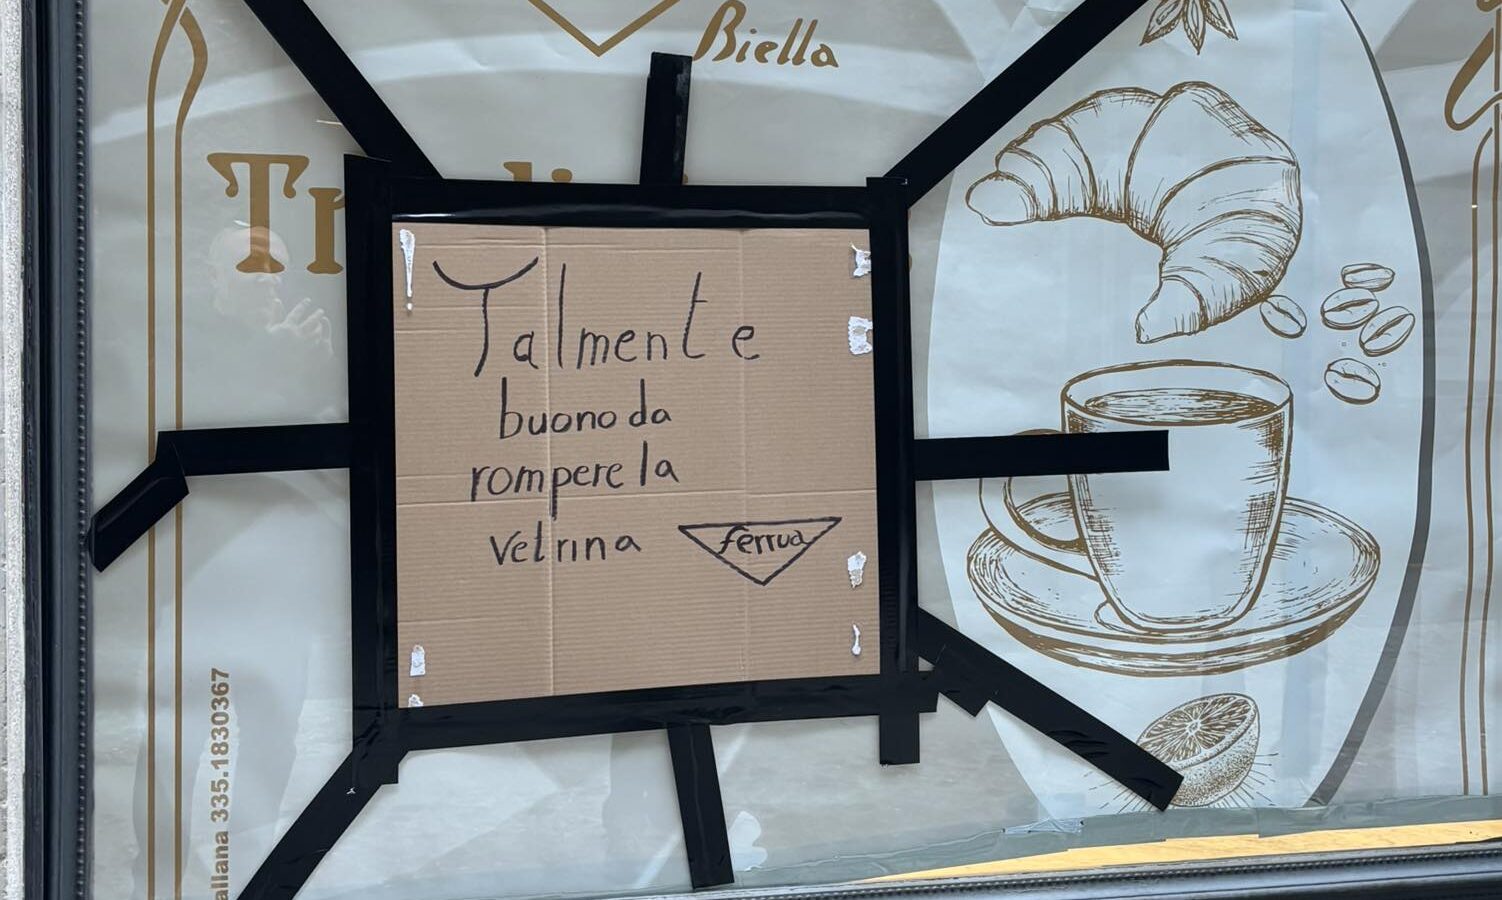 Biella
Talmente
buono da
rompere la
vetrina
ferrua
allana 335.1830367